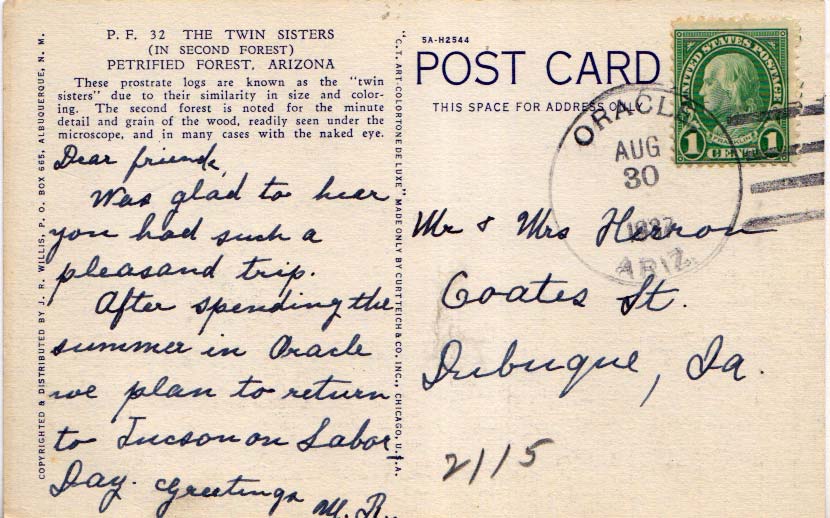 P. F. 32 THE TWIN SISTERS
(IN SECOND FOREST)
PETRIFIED FOREST, ARIZONA
These prostrate logs are known as the "twin
sisters" due to their similarity in size and color-
ing. The second forest is noted for the minute
detail and grain of the wood, readily seen under the
microscope, and in many cases with the naked eye.
Dear friends,
Was glad to hear
you had such a
pleasand trip.
After spending the
summer in Oracle
we plan to return
to Tucson on Labor
Day. Greetings
M. R.
COPYRIGHTED & DISTRIBUTED BY J. R. WILLIS, P. O. BOX 665, ALBUQUERQUE, N. M.
"C. T. ART-COLORTONE DE LUXE" MADE ONLY BY CURT TEICH & CO., INC., CHICAGO, U.S.A.
5A-H2544
POST CARD
THIS SPACE FOR ADDRESS ONLY
ORACLE
AUG
30
1937
ARIZ.
UNITED STATES POSTAGE
FRANKLIN
1 CENT 1
Mr & Mrs Herron
Coates St.
Dubuque, Ia.
2115